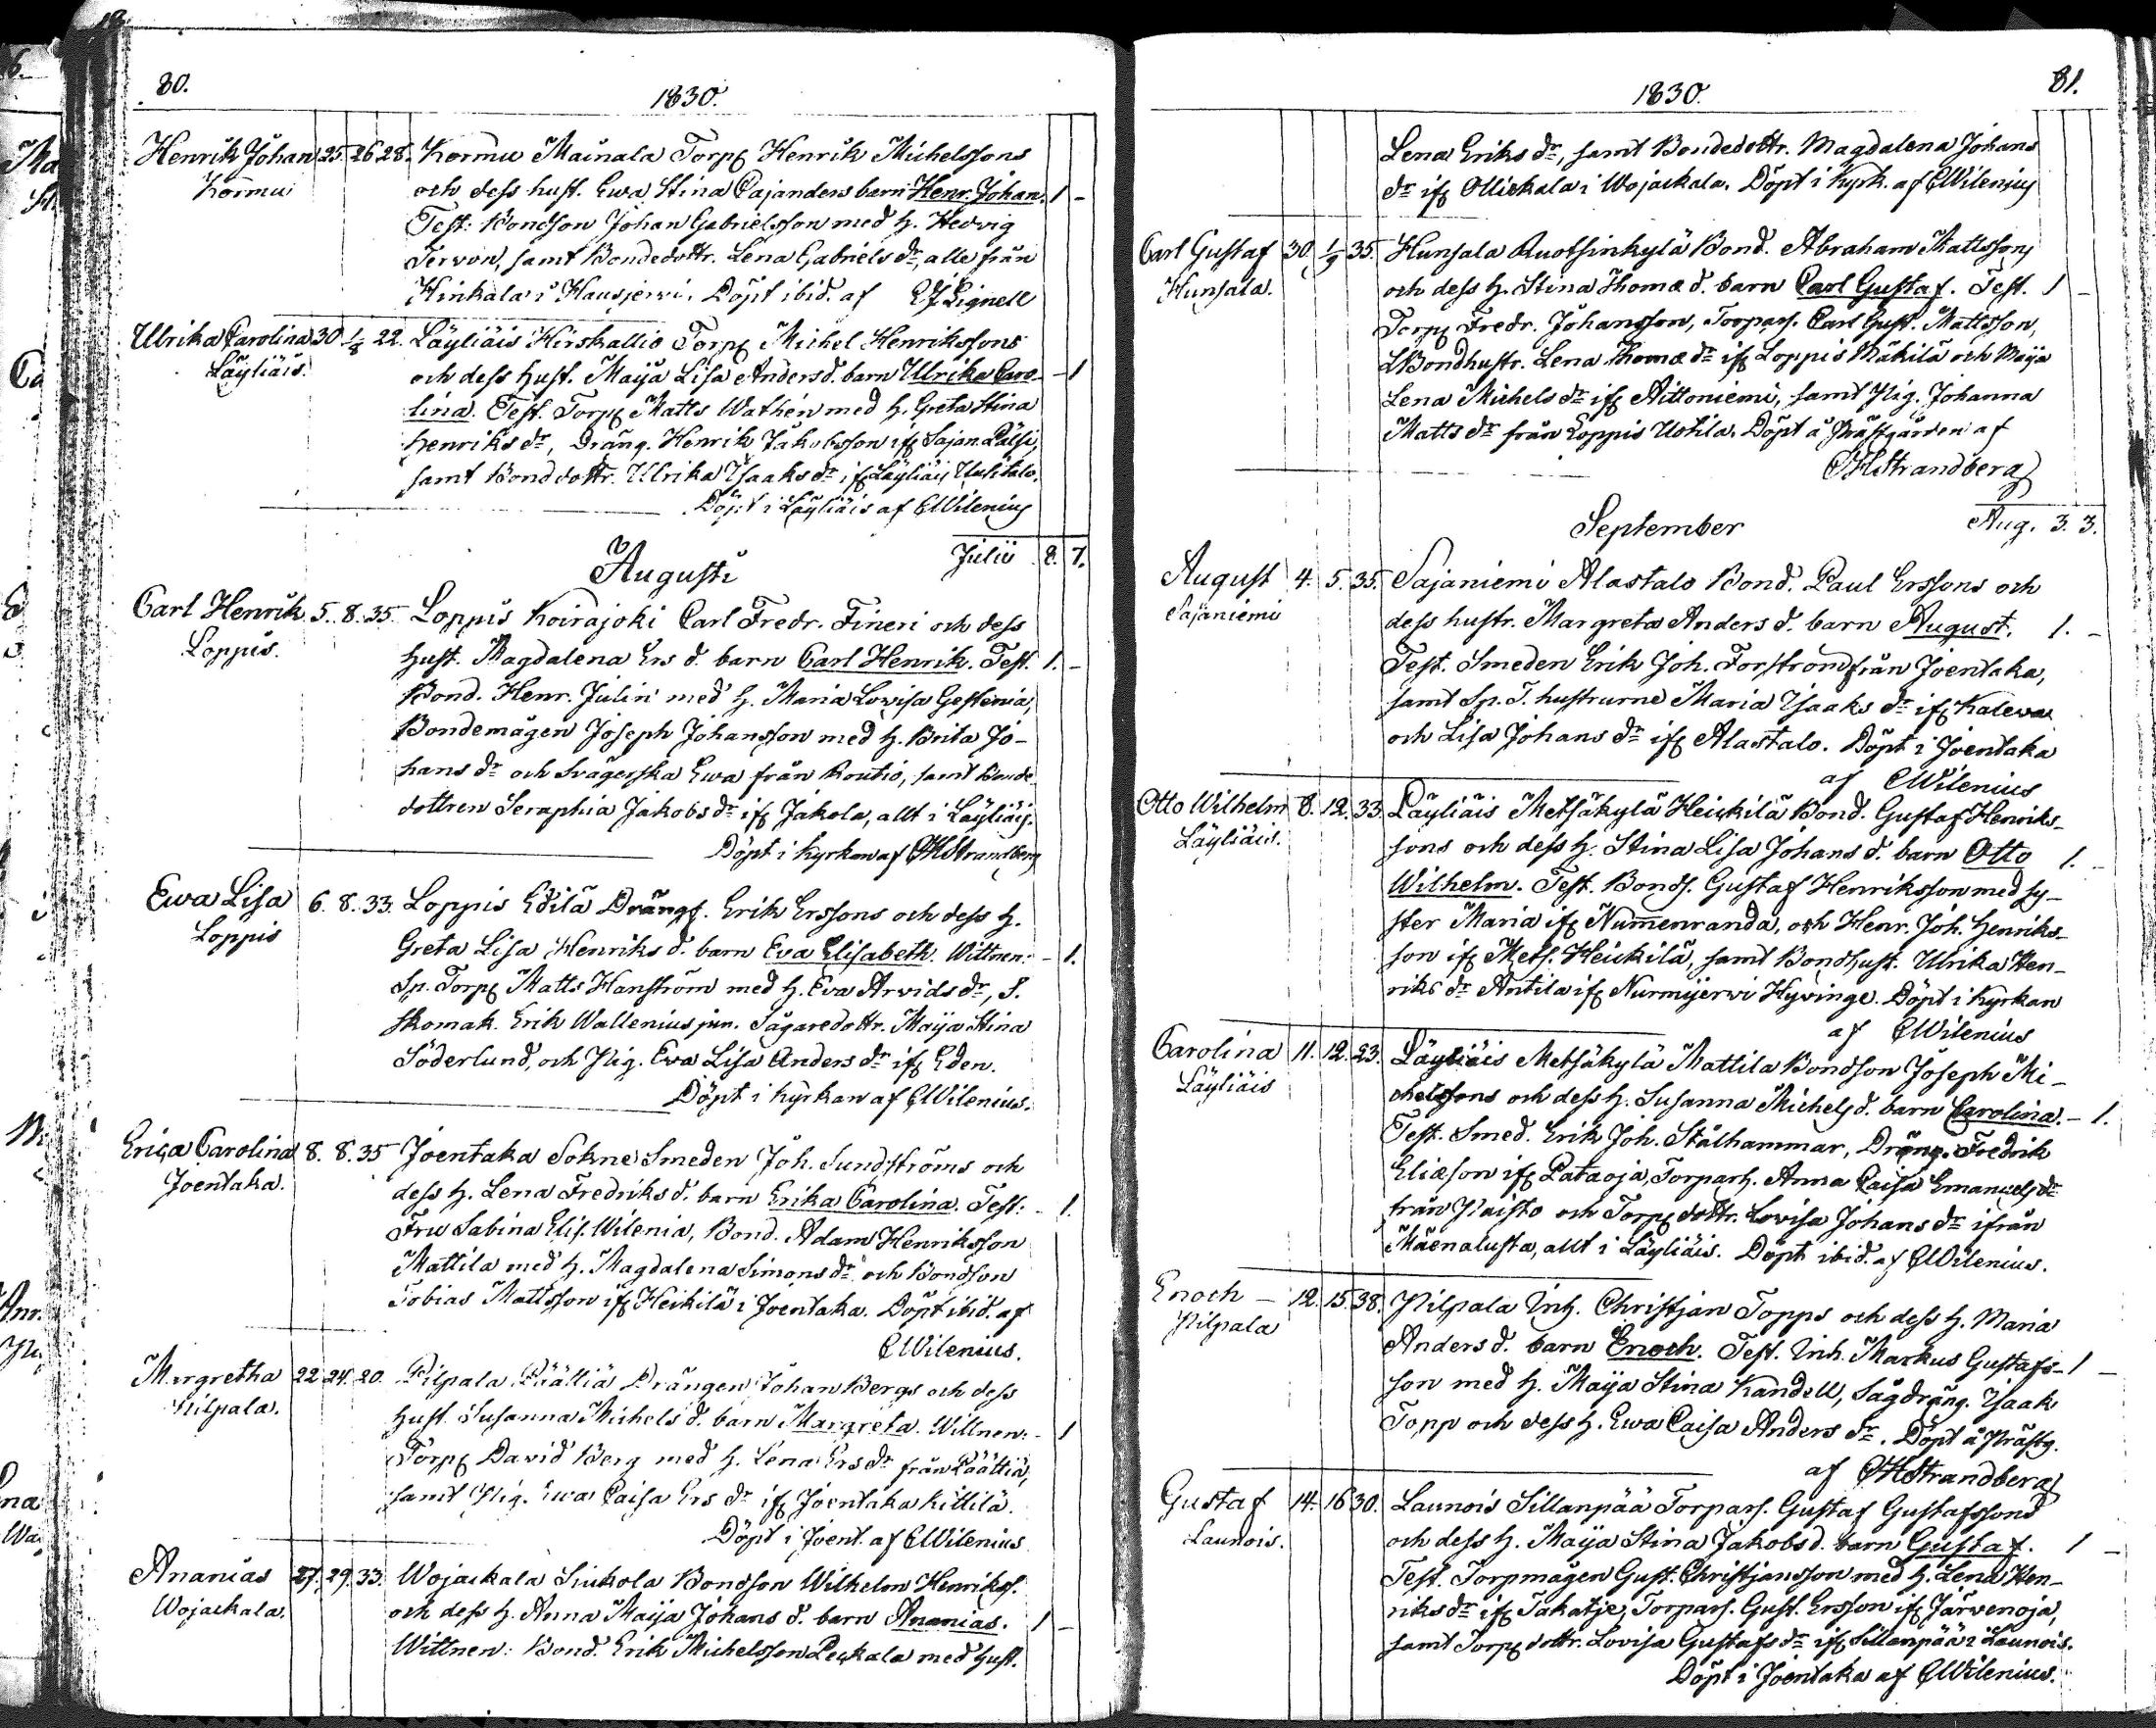 80.
1830.
Henrik Johan 25. 26 28. Kormu Mainala Torp. Henrik Michelssons
Kormu och dess hust. Ewa Stina Cajanders barn Henr. Johan. 1 -
Test: Bondson Johan Gabrielsson med h. Hedvig
Tervon, samt Bondedottr. Lena Gabriels dr, alle från
Hinkala i Hausjerwi. Döpt ibid. af Lignell
Ulrika Carolina 30. 1/8 22. Läyliäis Hirskallio Torp. Michel Henrikssons
Läyliäis. och dess hust. Maija Lisa Anders d. barn Ulrika Caro- - 1
lina. Test. Torp. Matts Wathén med h. Greta Stina
Henriks dr, Dräng. Henrik Jakobsson if. Sajan. Pälsi,
samt Bonddottr. Ulrika Isaaks dr if. Läyliäis Uusitalo.
Döpt i Läyliäis af CWilenius
Julii 8. 7.
Augusti
Carl Henrik 5. 8. 35. Loppis Koirajoki Carl Fredr. Fineri och dess
Loppis. hust. Magdalena Ers d. barn Carl Henrik. Test. 1. -
Bond. Henr. Julin med h. Maria Lovisa Gestenia,
Bondemågen Joseph Johansson med h. Brita Jo-
hans dr och Svägerska Ewa från Koutio, samt Bonde
dottren Seraphia Jakobs dr if. Jakola, allt i Läyliäis.
Döpt i Kyrkan af CHStrandberg
Ewa Lisa 6. 8. 33. Loppis Edilä Drängs. Erik Erssons och dess h.
Loppis Greta Lisa Henriks d. barn Eva Elisabeth. Wittnen: - 1.
Sp. Torp. Matts Hanström med h. Eva Arvids dr, S.
skomak. Erik Wallenius jun. Sågaredottr. Maija Stina
Söderlund, och Pig. Ewa Lisa Anders dr if. Eden.
Döpt i Kyrkan af CWilenius.
Erica Carolina 8. 8. 35 Joentaka Sokne Smeden Joh. Sundströms och
Joentaka. dess h. Lena Fredriks d. barn Erika Carolina. Test: - 1.
Fru Sabina Elis. Wilenia, Bond. Adam Henriksson
Mattila med h. Magdalena Simons dr och Bondson
Tobias Mattsson if. Heikilä i Joentaka. Döpt ibid. af
CWilenius.
Margretha 22 24. 20. Pilpala Päällia Drängen Johan Bergs och dess
Pilpala. hust. Susanna Michels d. barn Margreta. Wittnen: - 1
Torp. David Berg med h. Lena Ers dr från Päättiä,
samt Pig. Ewa Caisa Ers dr if. Joentaka Kittilä.
Döpt i Joent. af CWilenius
Ananias 27. 29. 33. Wojackala Siukola Bondson Wilhelm Henrikss.
Wojackala. och dess h. Anna Maija Johans d. barn Ananias. 1 -
Wittnen: Bond. Erik Michelsson Peckala med hust.
81.
1830.
Lena Eriks dr, samt Bondedottr. Magdalena Johans
dr if. Ollickala i Wojackala. Döpt i Kyrk. af CWilenius
Carl Gustaf 30. 1/9 35. Hunsala Ruotsinkylä Bond. Abraham Mattssons
Hunsala. och dess h. Stina Thomæ d. barn Carl Gustaf. Test. 1 -
Torp. Fredr. Johansson, Torpars. Carl Gust. Mattsson,
Bondhustr. Lena Thomæ dr if. Loppis Mäkilä och Maija
Lena Michels dr if. Aittoniemi, samt Pig. Johanna
Matts dr från Loppis Uotila. Döpt å Prästgården af
CHStrandberg
Aug. 3. 3.
September
August 4. 5. 35. Sajaniemi Alastalo Bond. Paul Erssons och
Sajaniemi dess hustr. Margreta Anders d. barn August. 1. -
Test. Smeden Erik Joh. Forsström från Joentaka,
samt Sp. T. hustrurne Maria Isaaks dr if. Kaleva
och Lisa Johans dr if. Alastalo. Döpt i Joentaka
af CWilenius
Otto Wilhelm 8. 12. 33. Läyliäis Metsäkylä Heickilä Bond. Gustaf Henriks-
Läyliäis. sons och dess h. Stina Lisa Johans d. barn Otto 1. -
Wilhelm. Test. Bonds. Gustaf Henriksson med sy-
ster Maria if. Num̄enranda, och Henr. Joh. Henriks-
son if. Mets. Heickilä, samt Bondhust. Ulrika Hen-
riks dr Antila if. Nurmijerwi Hyvinge. Döpt i Kyrkan
af CWilenius
Carolina 11. 12. 23. Läyliäis Metsäkylä Mattila Bondson Joseph Mi-
Läyliäis chelssons och dess h. Susanna Michels d. barn Carolina. - 1.
Test. Smed. Erik Joh. Stålhammar, Dräng. Fredrik
Eliæson if. Pataoja, Torparh. Anna Caisa Emanuels dr
från Paisto och Torp. dottr. Lovisa Johans dr ifrån
Mäenalusta, allt i Läyliäis. Döpt ibid. af CWilenius.
Enoch - 12. 15. 38. Pilpala Inh. Christjan Topps och dess h. Maria
Pilpala Anders d. barn Enoch. Test. Inh. Markus Gustafs- 1 -
son med h. Maija Stina Kandell, Sågdräng. Isaak
Topp och dess h. Ewa Caisa Anders dr. Döpt å Prästg.
af CHStrandberg
Gustaf 14. 16 30. Launois Sillanpää Torpars. Gustaf Gustafssons
Launois. och dess h. Maija Stina Jakobs d. barn Gustaf. 1 -
Test. Torpmågen Gust. Christjansson med h. Lena Hen-
riks dr if. Takatje, Torpars. Gust. Ersson if. Järvenoja,
samt Torp. dottr. Lovisa Gustafs dr if. Sillanpää i Launois.
Döpt i Joentaka af CWilenius.